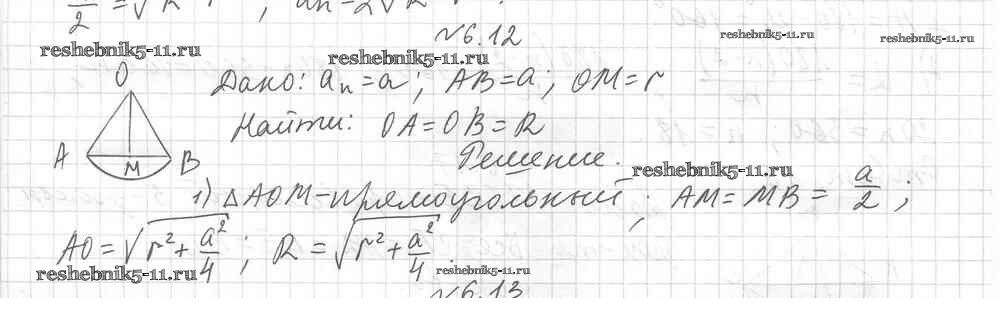 №6.12
reshebnik5-11.ru
reshebnik5-11.ru
reshebnik5-11.ru
O
Дано: aₙ=a; AB=a; OM=r
Найти: OA=OB=R
A M B
Решение.
reshebnik5-11.ru
1) △AOM-прямоугольный; AM=MB=a/2;
AO=√(r²+a²/4); R=√(r²+a²/4).
reshebnik5-11.ru
reshebnik5-11.ru
№6.13